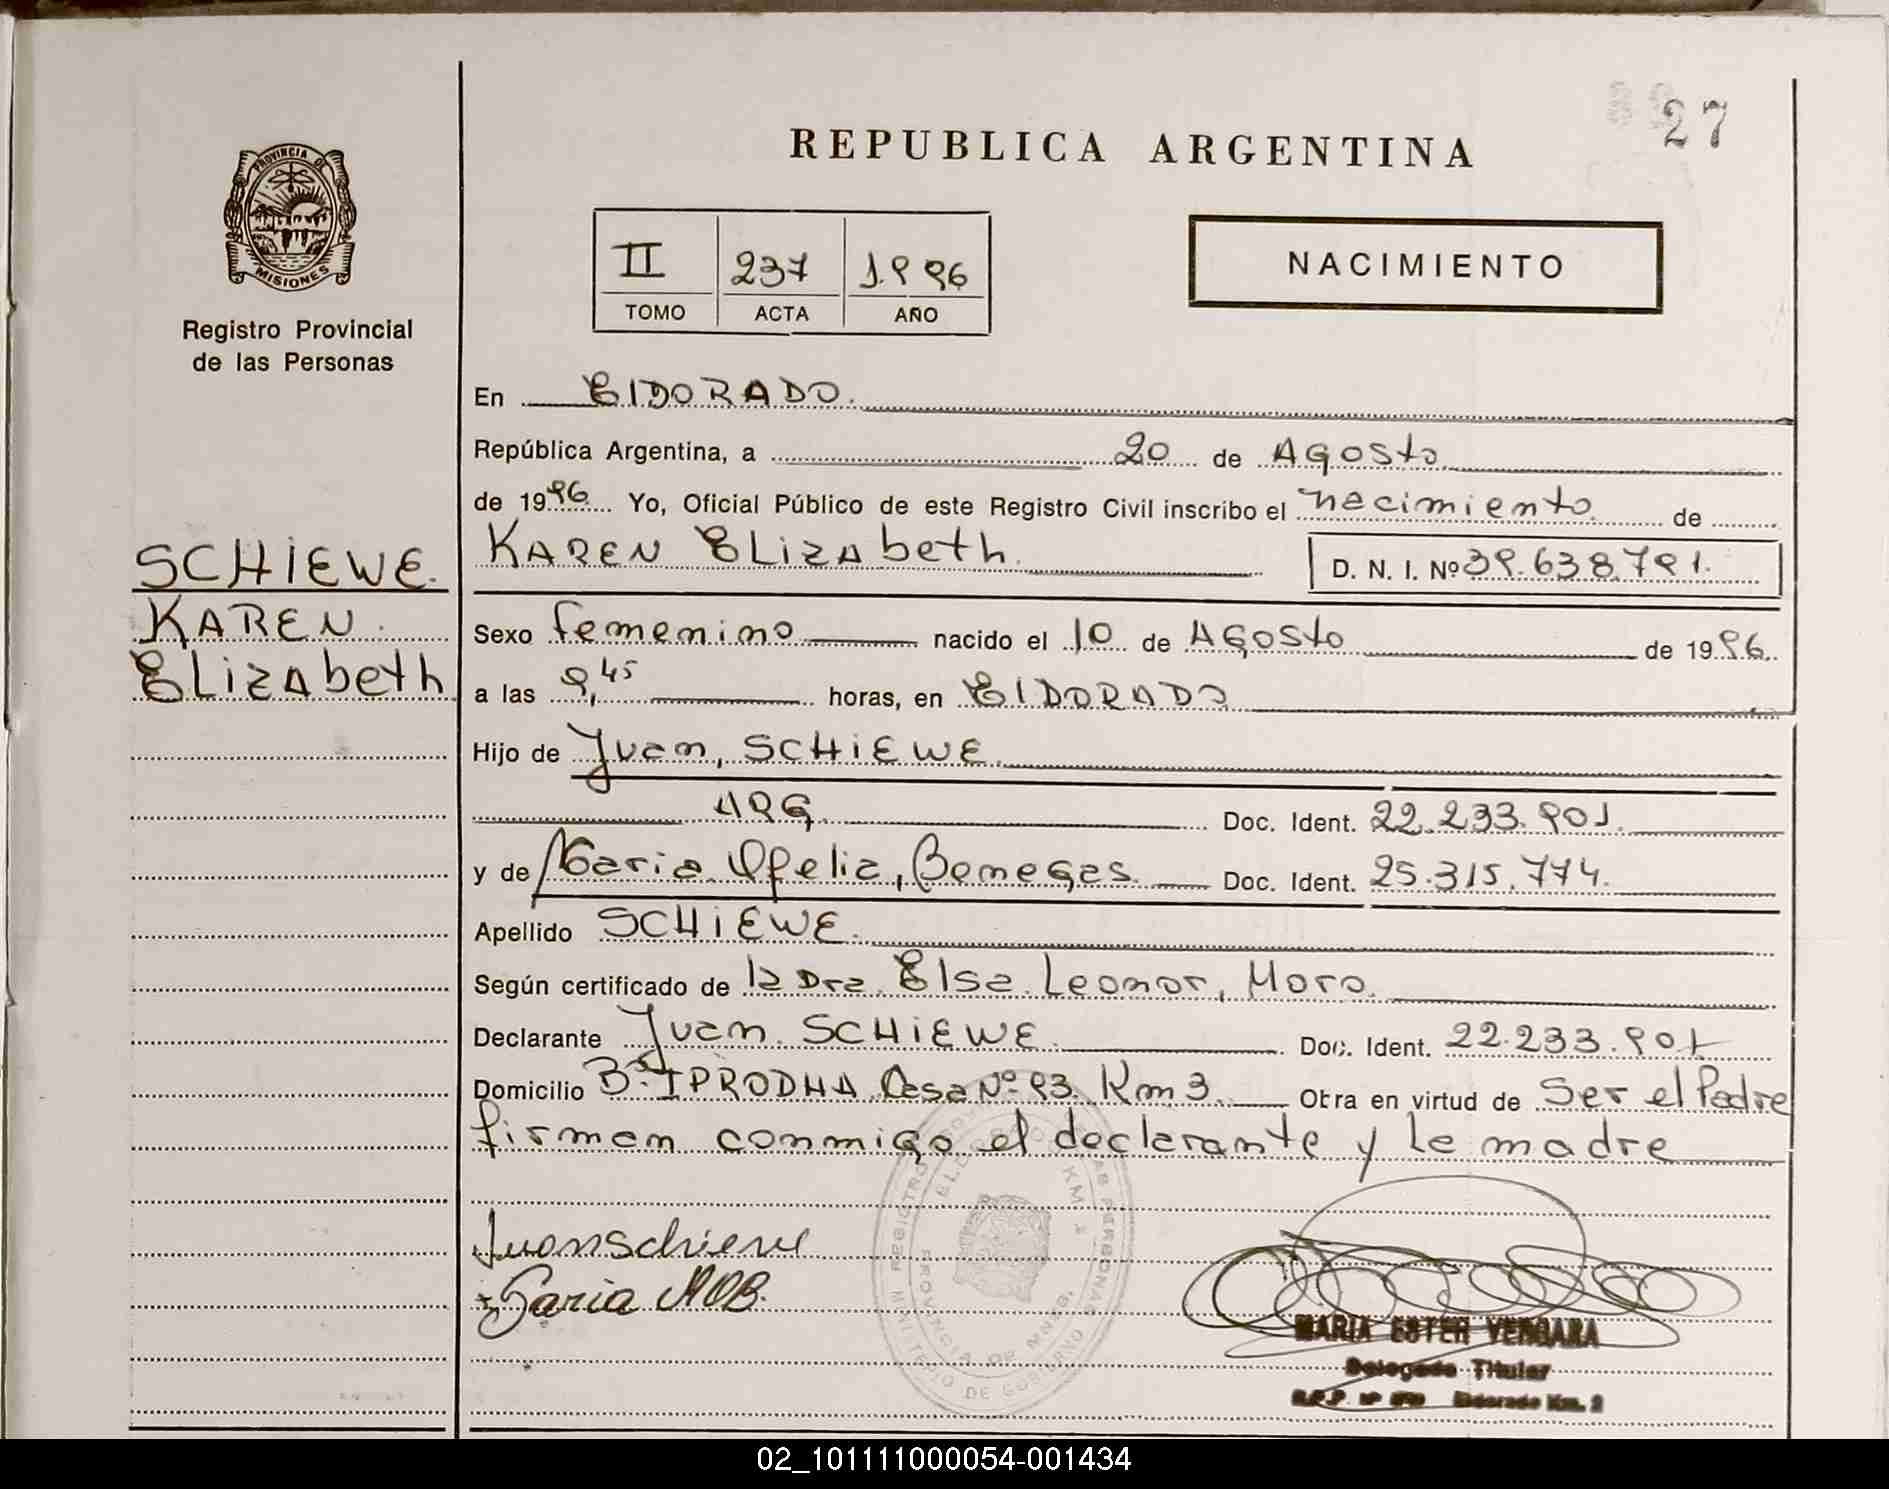 27
REPUBLICA ARGENTINA
PROVINCIA DE
MISIONES
Registro Provincial
de las Personas
II 237 1.996
TOMO ACTA AÑO
NACIMIENTO
En ElDORADO.
República Argentina, a 20 de AGOSto
de 1996 Yo, Oficial Público de este Registro Civil inscribo el nacimiento de
KAREN ELizAbeth D. N. I. Nº 39.638.791.
SCHiEWE.
KAREN
ELizAbeth
Sexo femenino nacido el 10 de AGOSto de 1996.
a las 9,45 horas, en ElDORADO
Hijo de Juan, SCHiEWE.
ARG. Doc. Ident. 22.233.901.
y de Maria Ofelia, Benegas. Doc. Ident. 25.315.774.
Apellido SCHiEWE.
Según certificado de la Dra. Elsa Leonor, Moro.
Declarante Juan SCHiEWE. Doc. Ident. 22.233.901
Domicilio Bº IPRODHA Casa Nº 93. Km 3. Otra en virtud de Ser el Padre
firman conmigo el declarante y la madre
Juan schiewe
MARIA ESTER VERGARA
Delegada Titular
Eldorado Km. 2
02_101111000054-001434